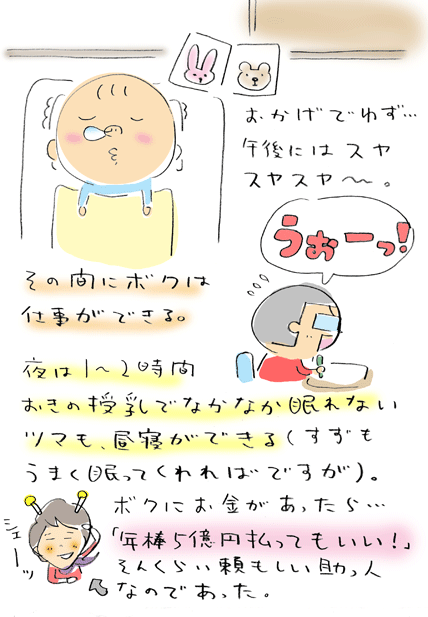 おかげでわず…
午後にはスヤ
スヤスヤ〜。
うぉーっ!
その間にボクは
仕事ができる。
夜は1〜2時間
おきの授乳でなかなか眠れない
ツマも、昼寝ができる(すずも
うまく眠ってくれればですが)。
ボクにお金があったら…
「年棒5億円払ってもいい!」
そんくらい頼もしい助っ人
なのであった。
シェーッ